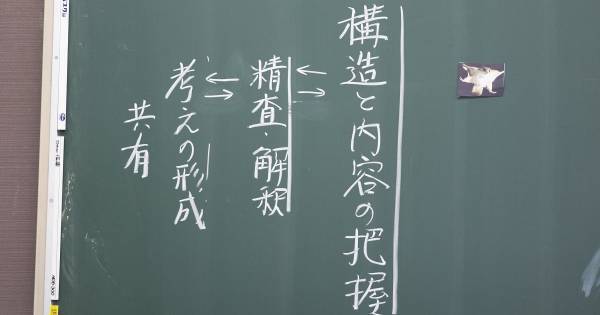 構造と内容の把握
精査・解釈
考えの形成
共有